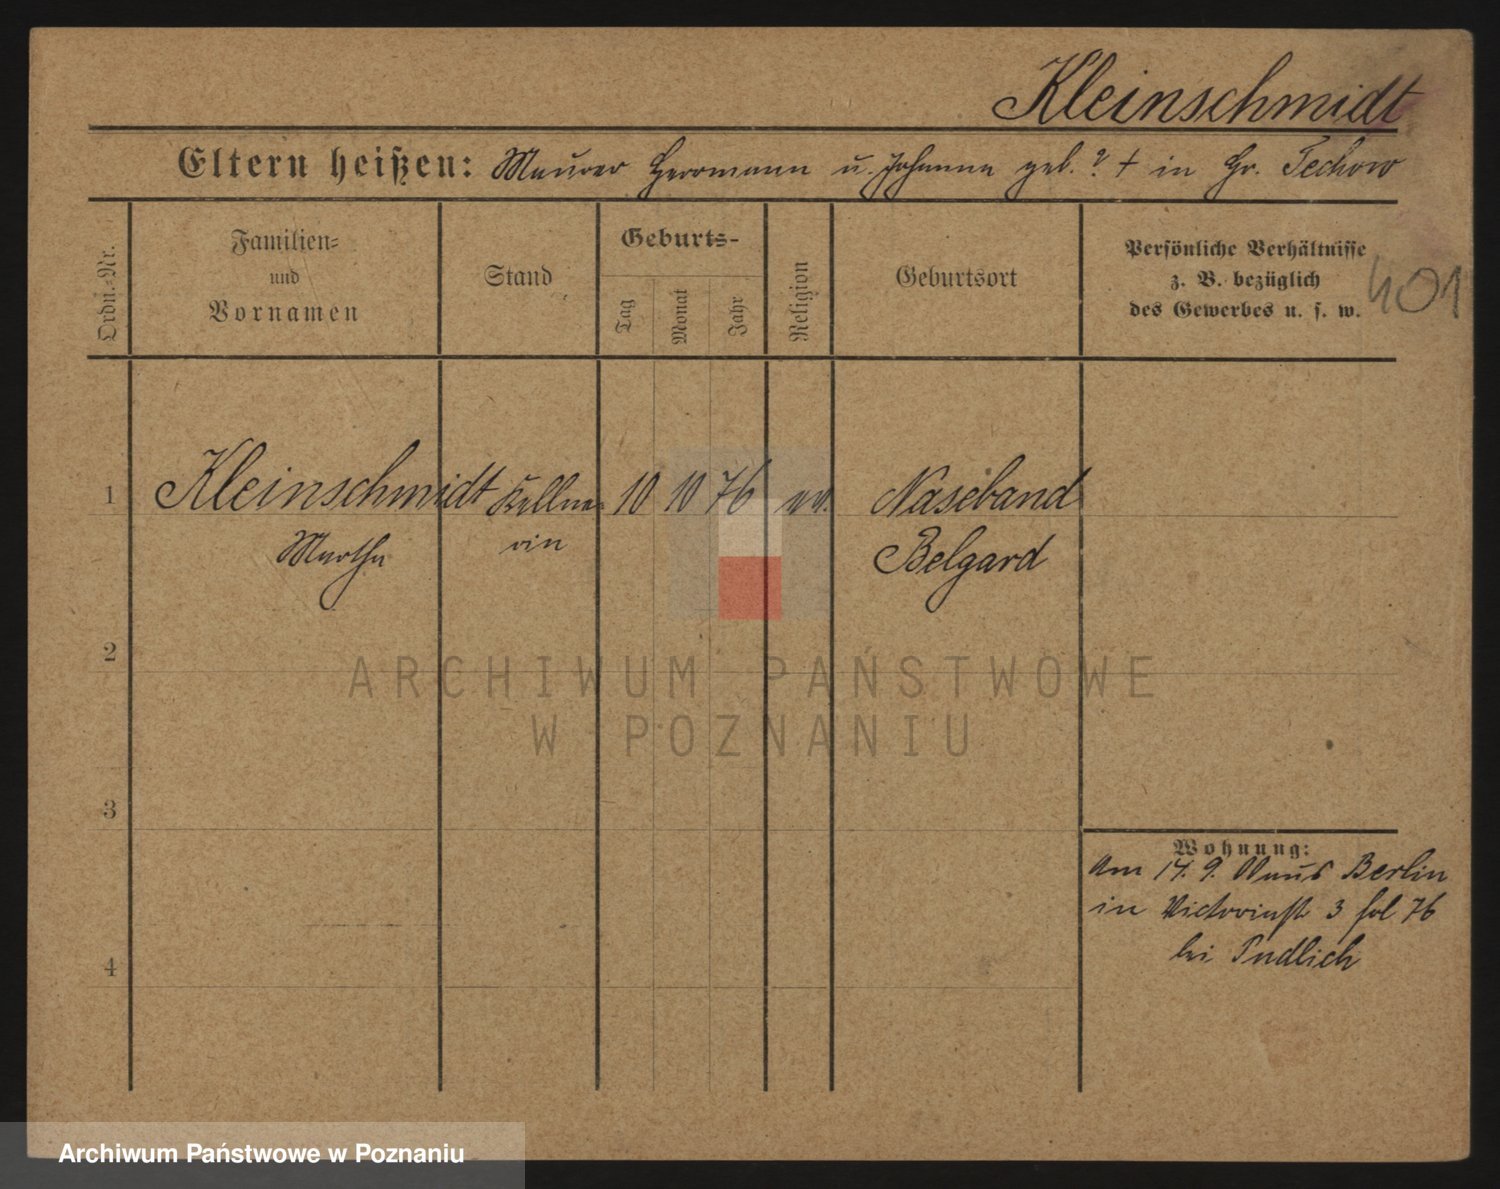 Kleinschmidt
Eltern heißen: Maurer Herrmann u. Johanna geb. ? † in Gr. Techow
Ordn.-Nr.
Familien-
und
Vornamen
Stand
Geburts-
Tag
Monat
Jahr
Religion
Geburtsort
Persönliche Verhältnisse
z. B. bezüglich
des Gewerbes u. s. w.
401
1 Kleinschmidt Kellne- 10 10 76 ev. Naseband
Martha rin Belgard
2
ARCHIWUM PAŃSTWOWE
W POZNANIU
3
Wohnung:
Am 17. 9. Berlin
in Victoriastr 3 fol 76
4
bei
Archiwum Państwowe w Poznaniu